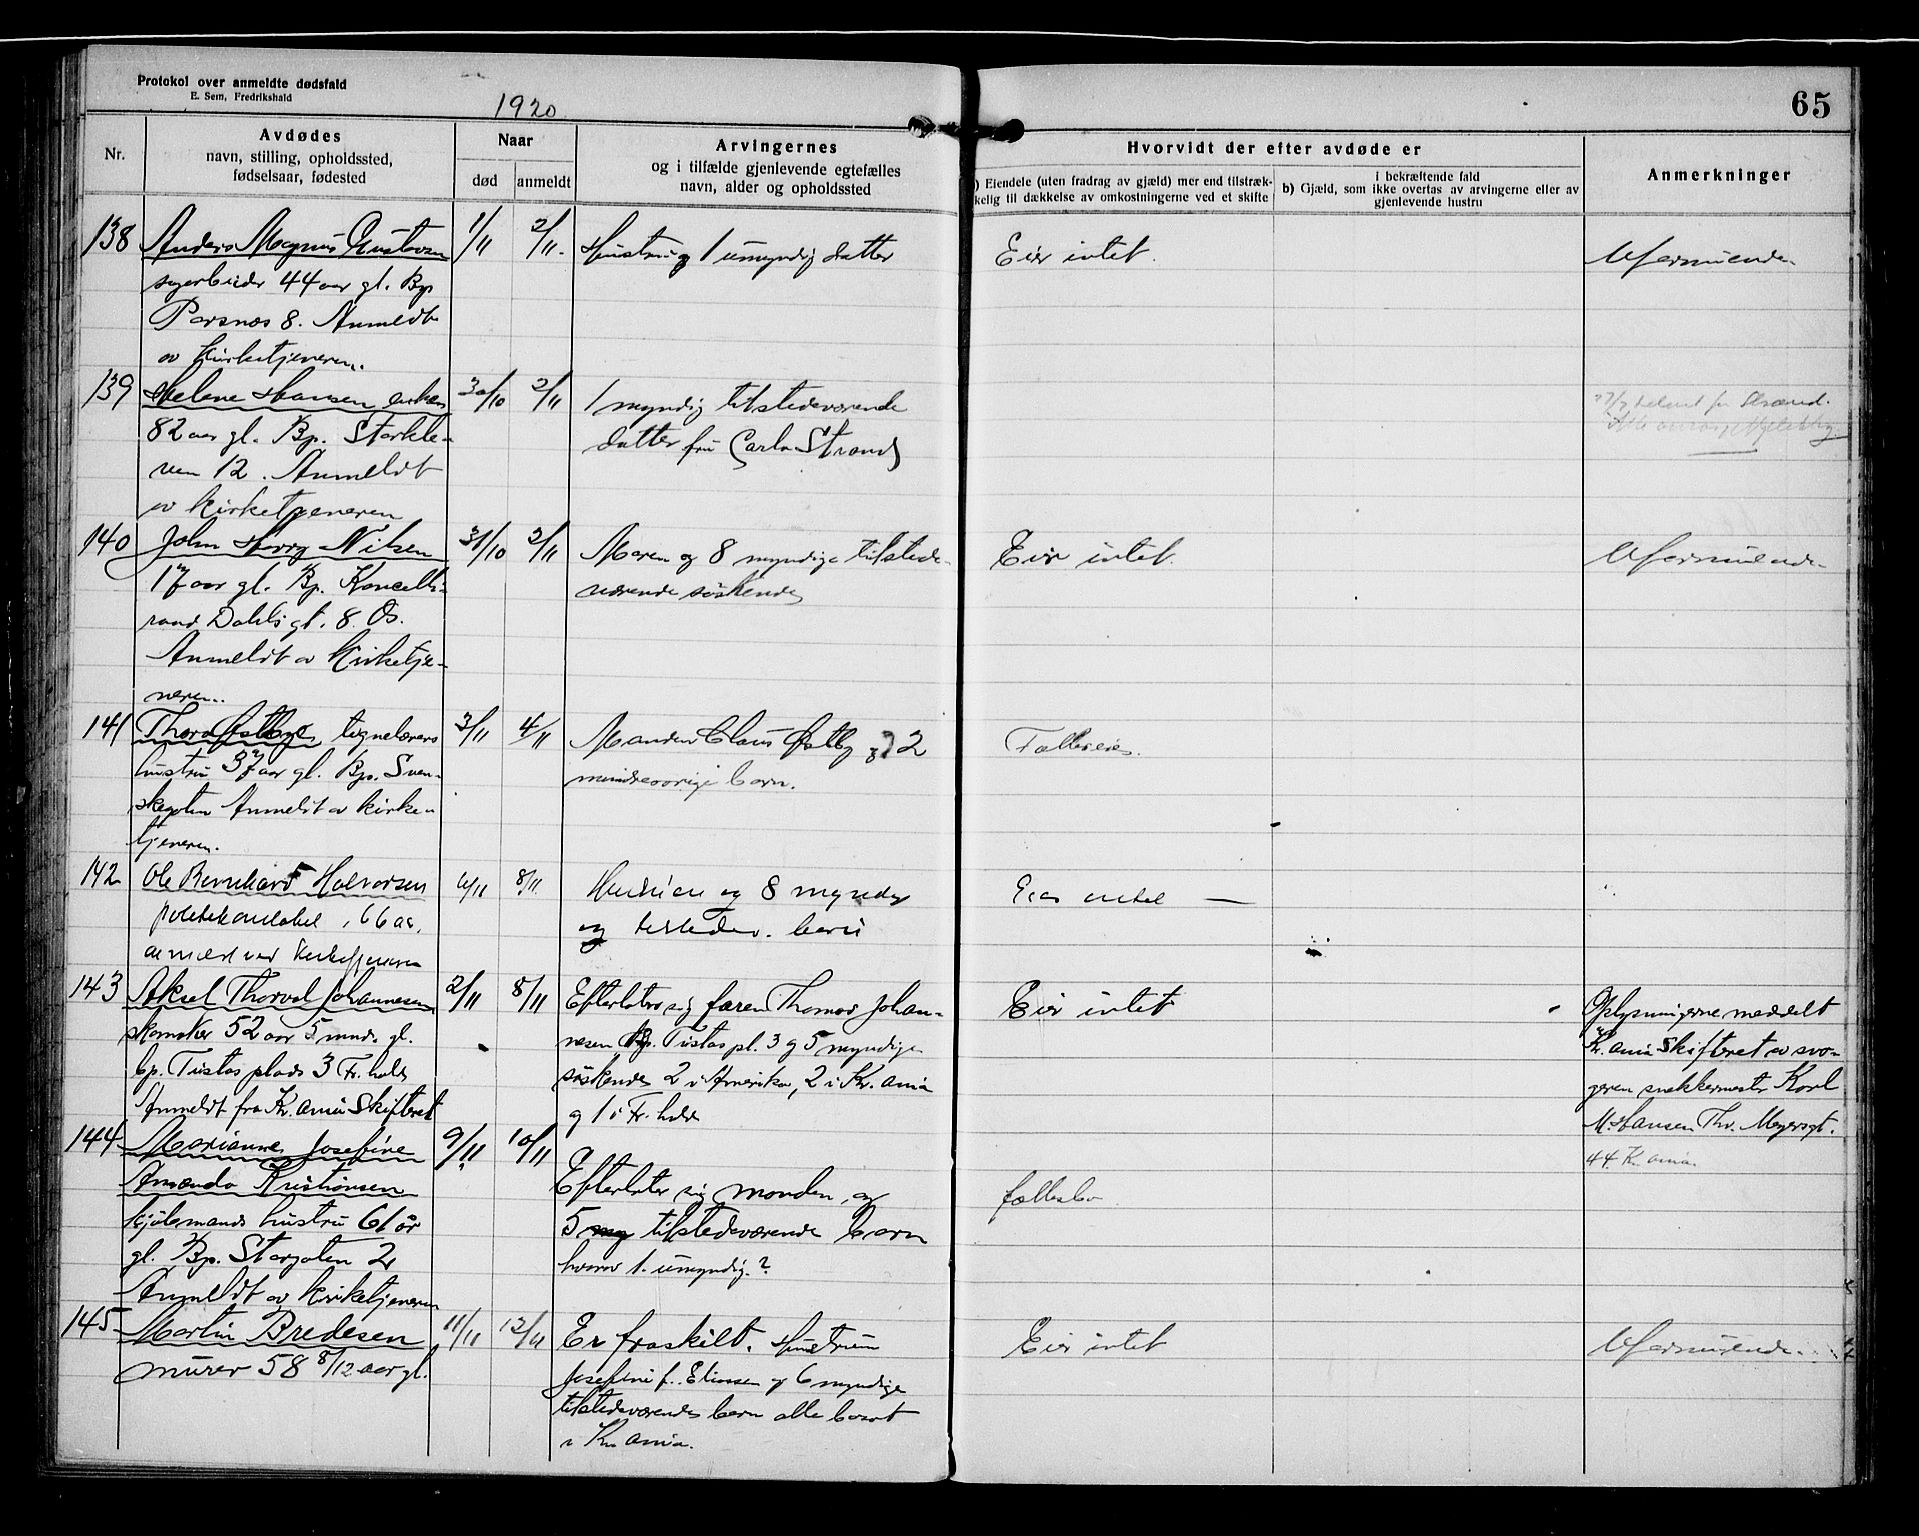 Protokol over anmeldte dødsfald
E. Sem, Fredrikshald
1920
65
Nr.
Avdødes
navn, stilling, opholdssted,
fødselsaar, fødested
Naar
død
anmeldt
Arvingernes
og i tilfælde gjenlevende egtefælles
navn, alder og opholdssted
Hvorvidt der efter avdøde er
) Eiendele (uten fradrag av gjæld) mer end tilstræk-
kelig til dækkelse av omkostningerne ved et skifte
i bekræftende fald
b) Gjæld, som ikke overtas av arvingerne eller av
gjenlevende hustru
Anmerkninger
138
Anders Magnus Gustavsen
44 aar gl. Bp
8. Anmeldt
av kirketjeneren.
1/11
2/11.
Hustru og 1 umyndig datter
Eier intet.
Uformuende
139
Helene Hansen enke
82 aar gl. Bp. Størkle-
ven 12. Anmeldt
av kirketjeneren
30/10
2/11
1 myndig tilstedeværende
datter fru Carla Strand
140
John Harry Nilsen
17 aar gl. Bp. Kancelli-
raad Dahls gt. 8. Øs.
Anmeldt av kirketje-
neren..
31/10
2/11
Moren og 8 myndige tilstede-
værende søskende
Eier intet.
Uformuende
141
Thora Østbye tegnelærers
hustru 37 aar gl. Bp. Sven-
skegaten Anmeldt av kirke-
tjeneren.
3/11
4/11
Manden Claus Østby og 2
mindreaarige barn.
Fælleseie.
142
Ole Bernhard Halvorsen
politikonstabel, 66 aar,
anmeldt ved kirketjeneren
6/11
8/11
Hustruen og 8 myndige
og tilstedev. barn
Eier intet —
143
Aksel Thorval Johannesen
skomaker 52 aar 5 mnd. gl.
bp. Tistas plads 3 Fr.hald
Anmeldt fra Kr.ania Skifteret
2/11
8/11
Efterlater sig faren Thomas Johan-
nesen Bp. Tistas pl. 3 og 5 myndige
søskende 2 i Amerika, 2 i Kr.ania
og 1 i Fr.hald
Eier intet
Oplysningerne meddelt
Kr.ania Skifteret av svo-
geren snekkermester Karl
M. Hansen Thv. Meyersgt.
44 Kr.ania.
144
Marianne Josefine
Amanda Kristiansen
kjølemands hustru 61 år
gl. Bp. Storgaten 2
Anmeldt av kirketjeneren
9/11
10/11
Efterlater sig manden og
5 my tilstedeværende barn
hvorav 1. umyndig.?
fællesbo
145
Martin Bredesen
murer 58 8/12 aar gl.
11/11
12/11
Er fraskilt. Hustrum
Josefine f. Eliassen og 6 myndige
tilstedeværende barn alle bosat
i Kr.ania.
Eier intet
Uformuende